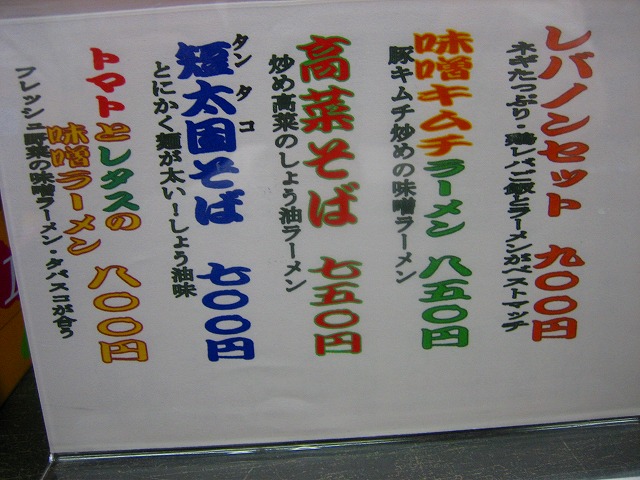 レバノンセット 九〇〇円
ネギたっぷり・鶏レバご飯とラーメンがベストマッチ
味噌キムチラーメン 八五〇円
豚キムチ炒めの味噌ラーメン
高菜そば 七五〇円
炒め高菜のしょう油ラーメン
タンタコ
短太国そば 七〇〇円
とにかく麺が太い!しょう油味
トマトとレタスの
味噌ラーメン 八〇〇円
フレッシュ野菜の味噌ラーメン・タバスコが合う